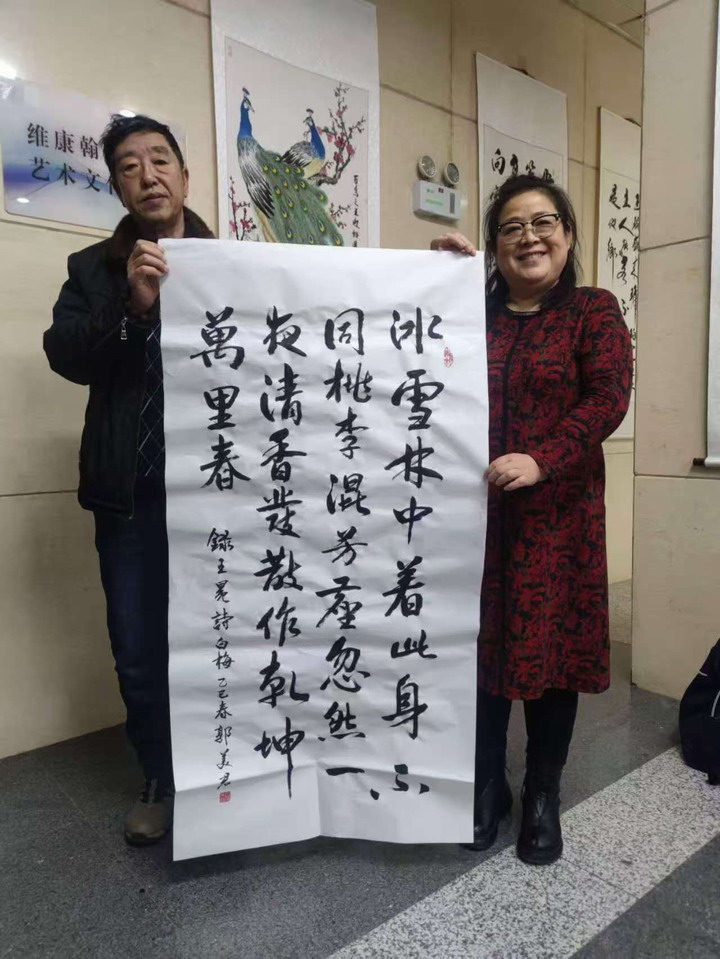 维康翰
艺术文
冰雪林中着此身不
同桃李混芳塵忽然一
夜清香發散作乾坤
萬里春
錄王冕詩白梅 乙巳春 郭美君